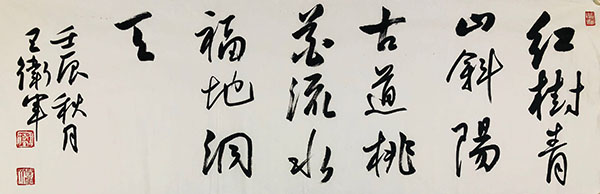 红树青
山斜陽
古道桃
花流水
福地洞
天
壬辰秋月
王衛軍